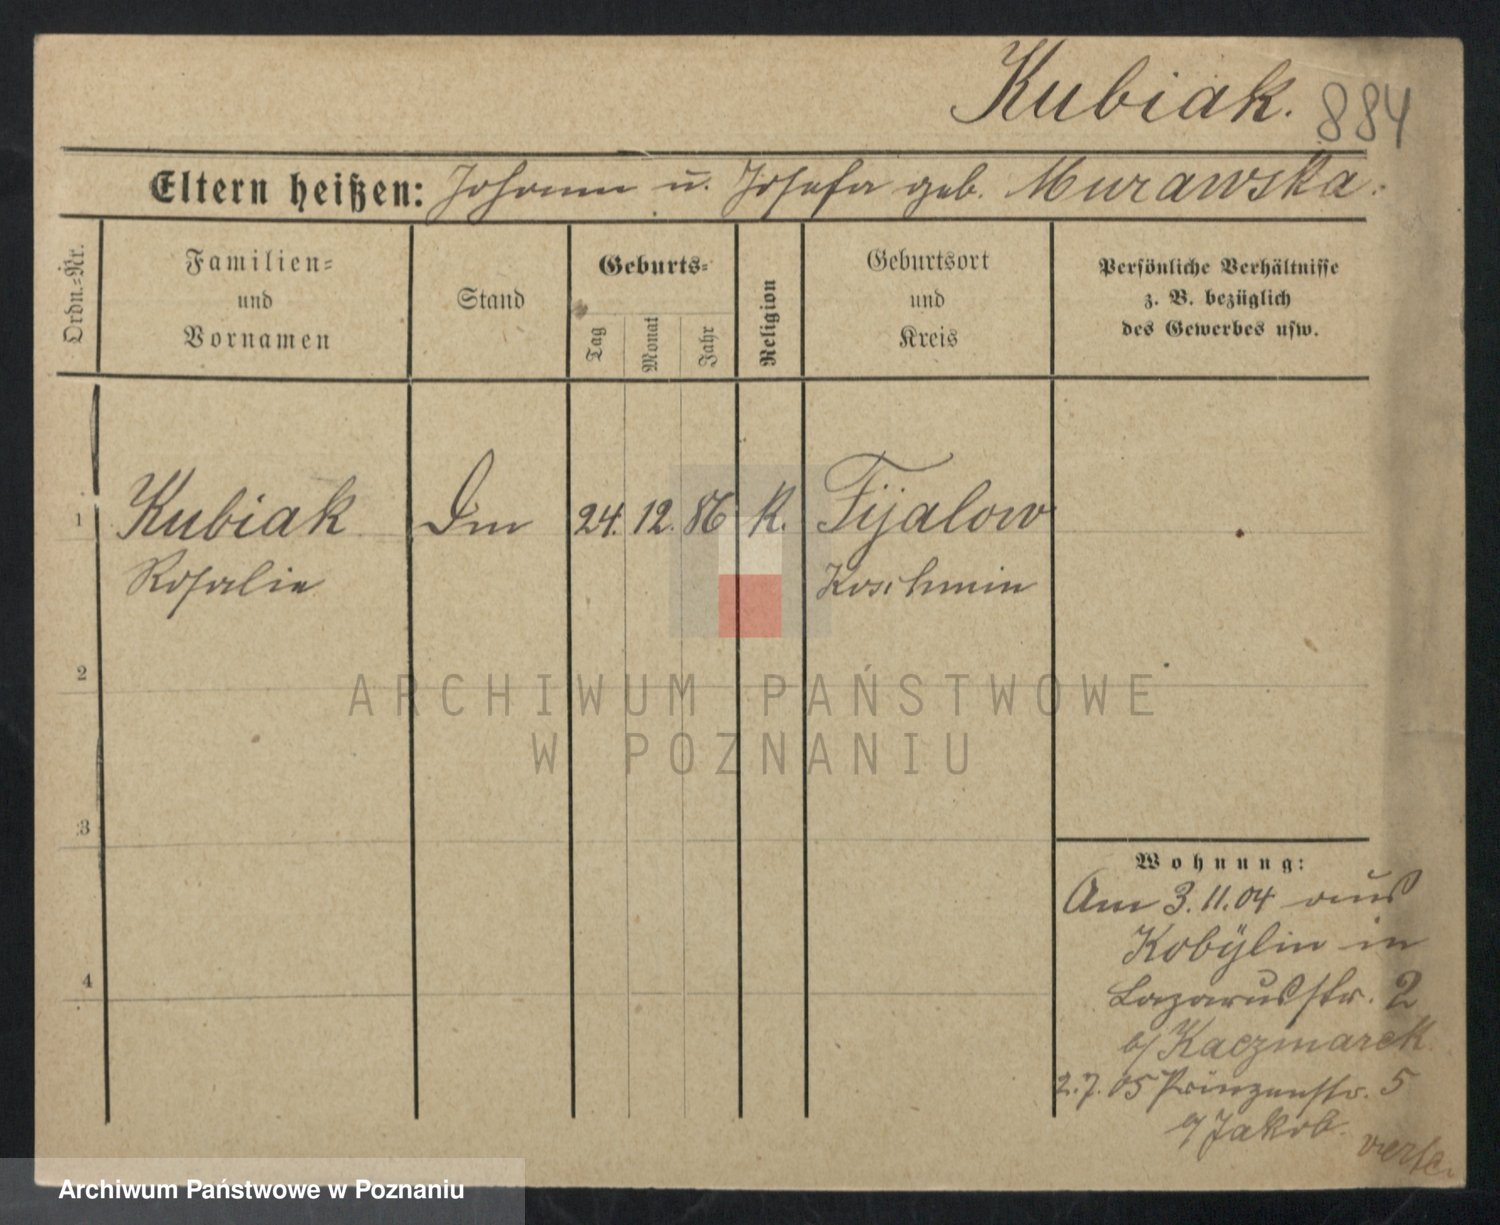 Kubiak. 884
Eltern heißen: Johann u. Josefa geb. Murawska.
Ordn.-Nr.
Familien-
und
Vornamen
Stand
Geburts-
Tag
Monat
Jahr
Religion
Geburtsort
und
Kreis
Persönliche Verhältnisse
z. B. bezüglich
des Gewerbes usw.
1 Kubiak Dm 24. 12. 86 K. Fijalow
Rosalie Koschmin
2
3
4
Wohnung:
Am 3.11.04 aus
Kobylin in
Lazarusstr. 2
b/ Kaczmarek
2.7.05 Prinzenstr. 5
b/ Jakob.
ARCHIWUM PAŃSTWOWE
W POZNANIU
Archiwum Państwowe w Poznaniu